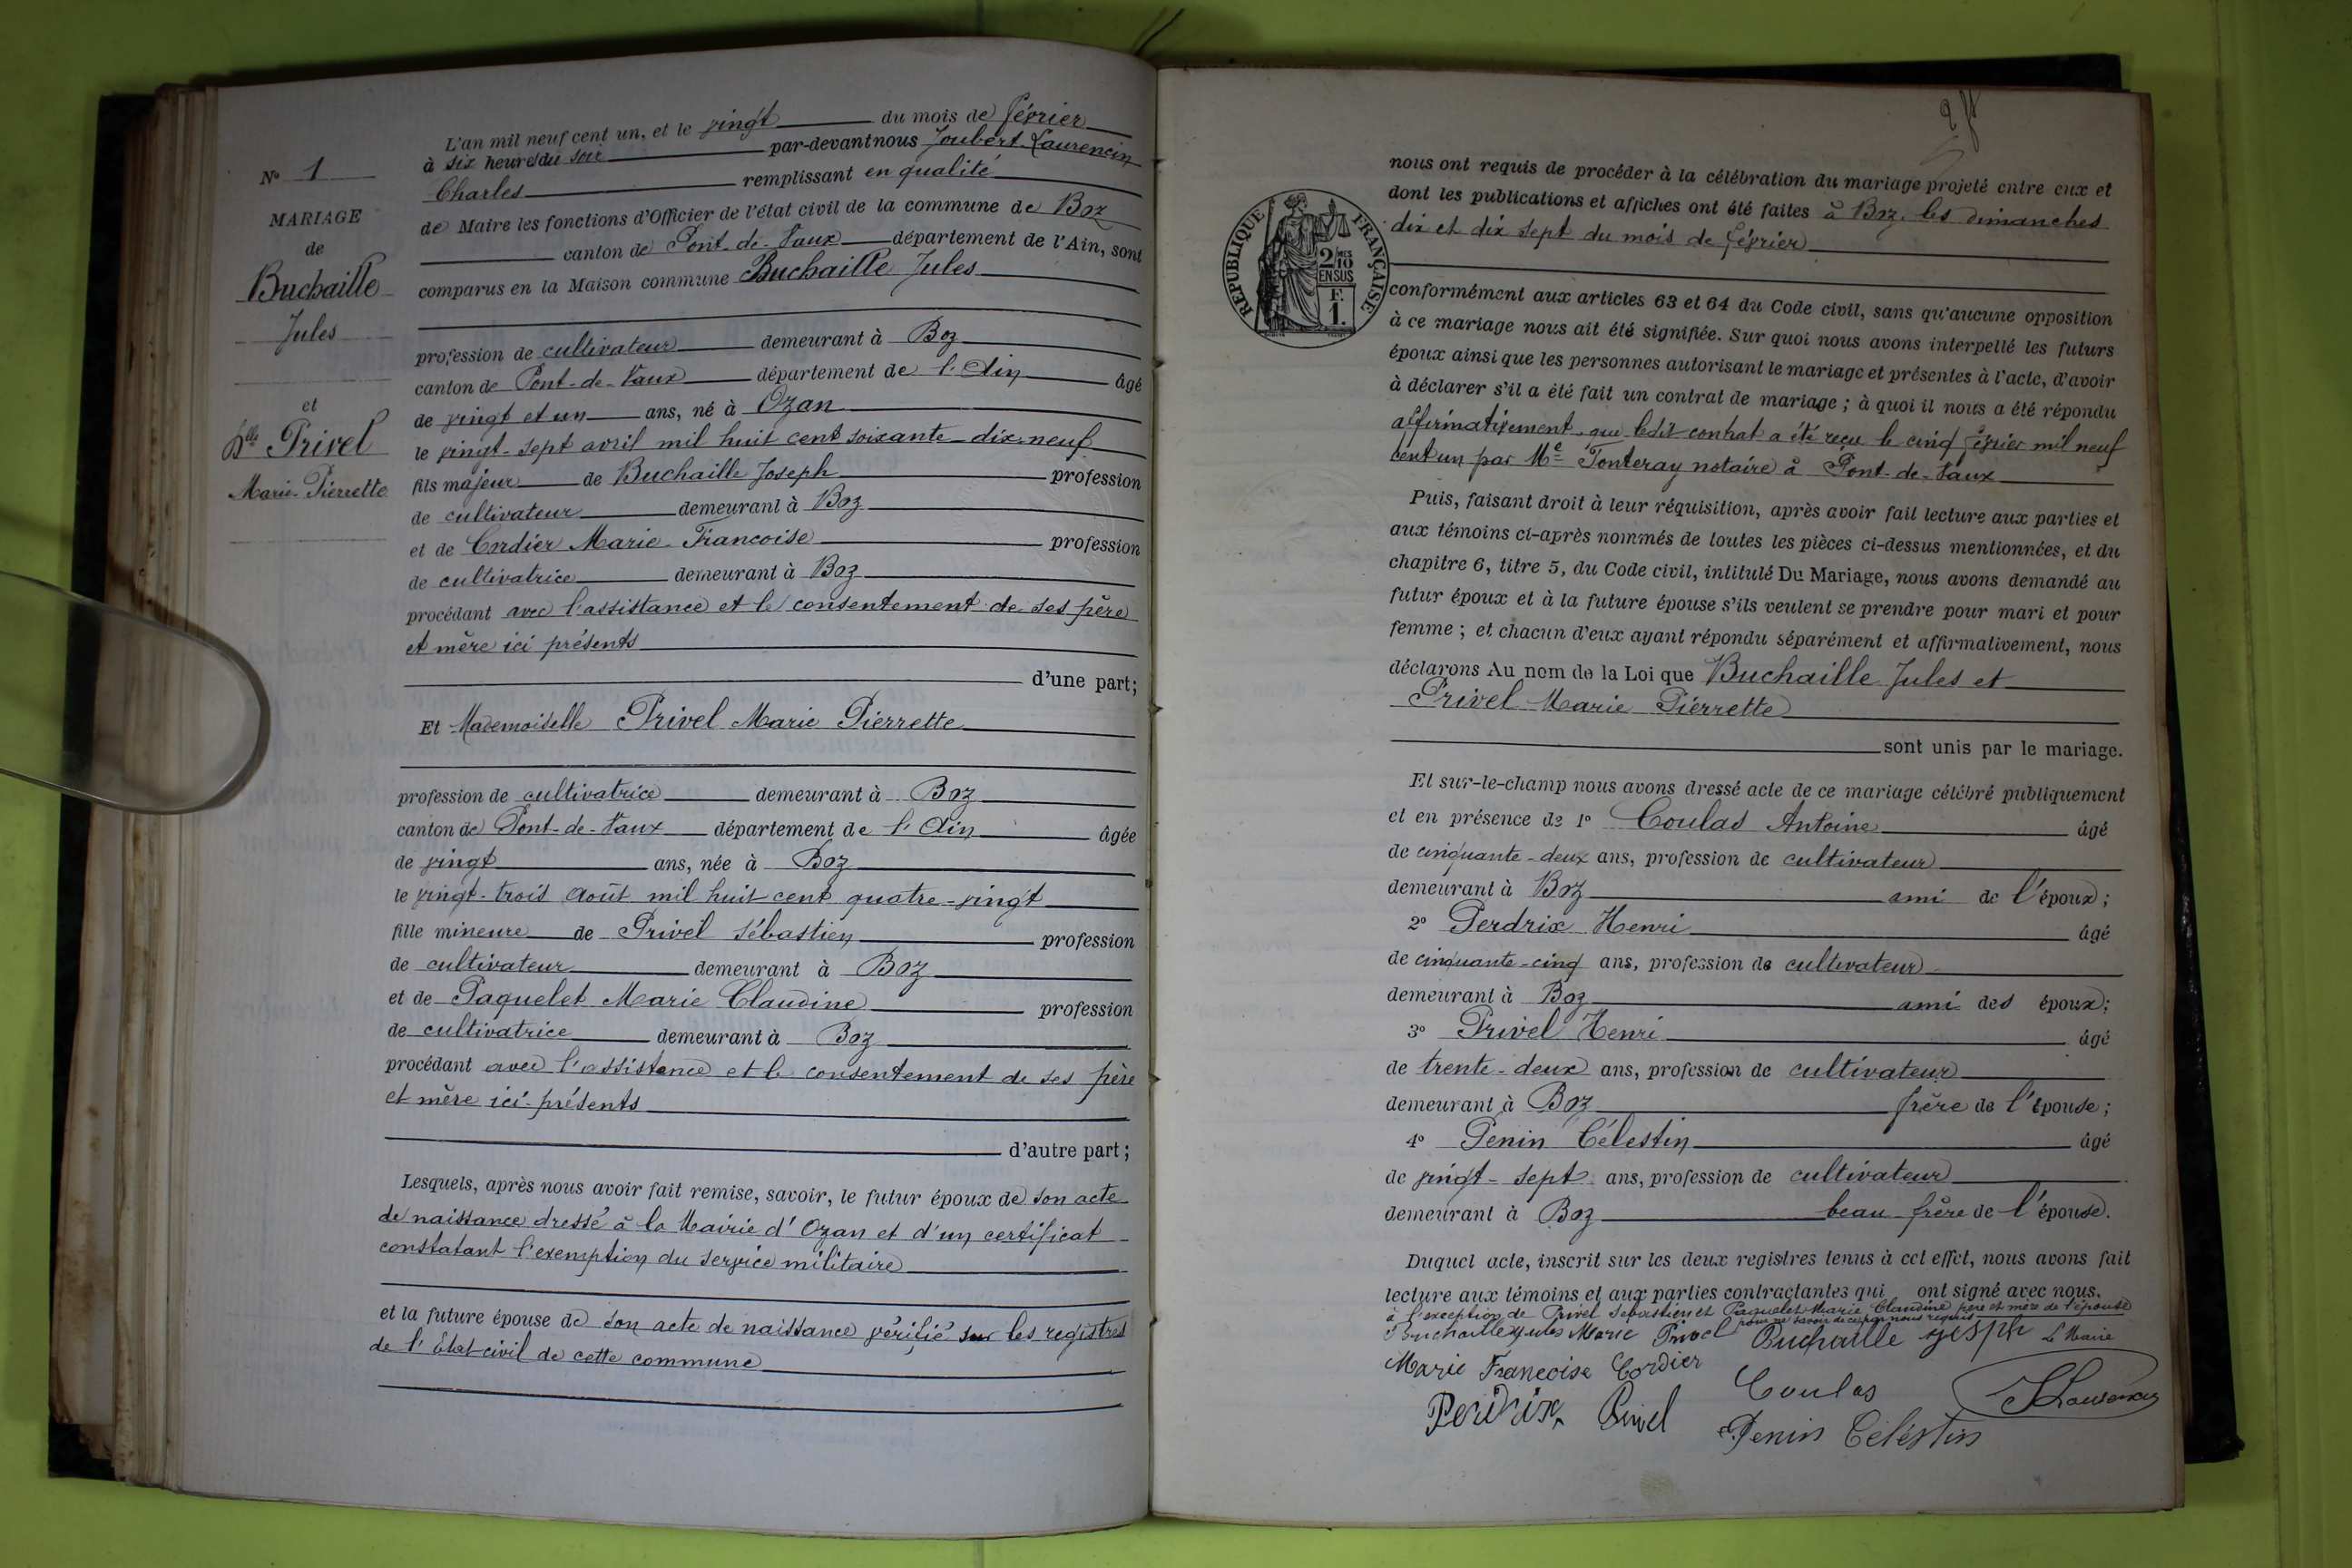 L'an mil neuf cent un, et le vingt du mois de février
à six heures du soir par-devant nous Joubert Laurencin
Charles remplissant en qualité
de Maire les fonctions d'Officier de l'état civil de la commune de Boz
canton de Pont-de-Vaux département de l'Ain, sont
comparus en la Maison commune Buchaille Jules
profession de cultivateur demeurant à Boz
canton de Pont-de-Vaux département de l'Ain âgé
de vingt et un ans, né à Ozan
le vingt-sept avril mil huit cent soixante-dix-neuf
fils majeur de Buchaille Joseph profession
de cultivateur demeurant à Boz
et de Cordier Marie-Francoise profession
de cultivatrice demeurant à Boz
procédant avec l'assistance et le consentement de ses père
et mère ici présents
d'une part;
Et Mademoiselle Privel Marie Pierrette
profession de cultivatrice demeurant à Boz
canton de Pont-de-Vaux département de l'Ain âgée
de vingt ans, née à Boz
le vingt-trois août mil huit cent quatre-vingt
fille mineure de Privel Sébastien profession
de cultivateur demeurant à Boz
et de Paquelet Marie Claudine profession
de cultivatrice demeurant à Boz
procédant avec l'assistance et le consentement de ses père
et mère ici-présents
d'autre part;
Lesquels, après nous avoir fait remise, savoir, le futur époux de son acte
de naissance dressé à la Mairie d'Ozan et d'un certificat
constatant l'exemption du service militaire
et la future épouse de son acte de naissance vérifié sur les registres
de l'Etat-civil de cette commune
No 1
MARIAGE
de
Buchaille
Jules
et
Dlle Privel
Marie-Pierrette
nous ont requis de procéder à la célébration du mariage projeté entre eux et
dont les publications et affiches ont été faites à Boz, les dimanches
dix et dix sept du mois de février
RÉPUBLIQUE FRANÇAISE
2/10 MES
EN SUS
F.
1.
conformément aux articles 63 et 64 du Code civil, sans qu'aucune opposition
à ce mariage nous ait été signifiée. Sur quoi nous avons interpellé les futurs
époux ainsi que les personnes autorisant le mariage et présentes à l'acte, d'avoir
à déclarer s'il a été fait un contrat de mariage ; à quoi il nous a été répondu
affirmativement, que ledit contrat a été reçu le cinq février mil neuf
cent un par Me Tonteray notaire à Pont-de-Vaux
Puis, faisant droit à leur réquisition, après avoir fait lecture aux parties et
aux témoins ci-après nommés de toutes les pièces ci-dessus mentionnées, et du
chapitre 6, titre 5, du Code civil, intitulé Du Mariage, nous avons demandé au
futur époux et à la future épouse s'ils veulent se prendre pour mari et pour
femme ; et chacun d'eux ayant répondu séparément et affirmativement, nous
déclarons Au nom de la Loi que Buchaille Jules et
Privel Marie Pierrette
sont unis par le mariage.
Et sur-le-champ nous avons dressé acte de ce mariage célébré publiquement
et en présence de 1o Coulas Antoine âgé
de cinquante-deux ans, profession de cultivateur
demeurant à Boz ami de l'époux;
2o Perdrix Henri âgé
de cinquante-cinq ans, profession de cultivateur
demeurant à Boz ami des époux;
3o Privel Henri âgé
de trente-deux ans, profession de cultivateur
demeurant à Boz frère de l'épouse;
4o Penin Célestin âgé
de vingt-sept ans, profession de cultivateur
demeurant à Boz beau frère de l'épouse.
Duquel acte, inscrit sur les deux registres tenus à cet effet, nous avons fait
lecture aux témoins et aux parties contractantes qui ont signé avec nous.
à l'exception de Privel Sébastien et Paquelet Marie Claudine père et mère de l'épouse
pour ne savoir de ce par nous requis
Buchaille Jules Marie Privel Buchaille Josph Le Maire
Marie Francoise Cordier
Perdrix Privel Coulas JLaurencin
Penin Célestin